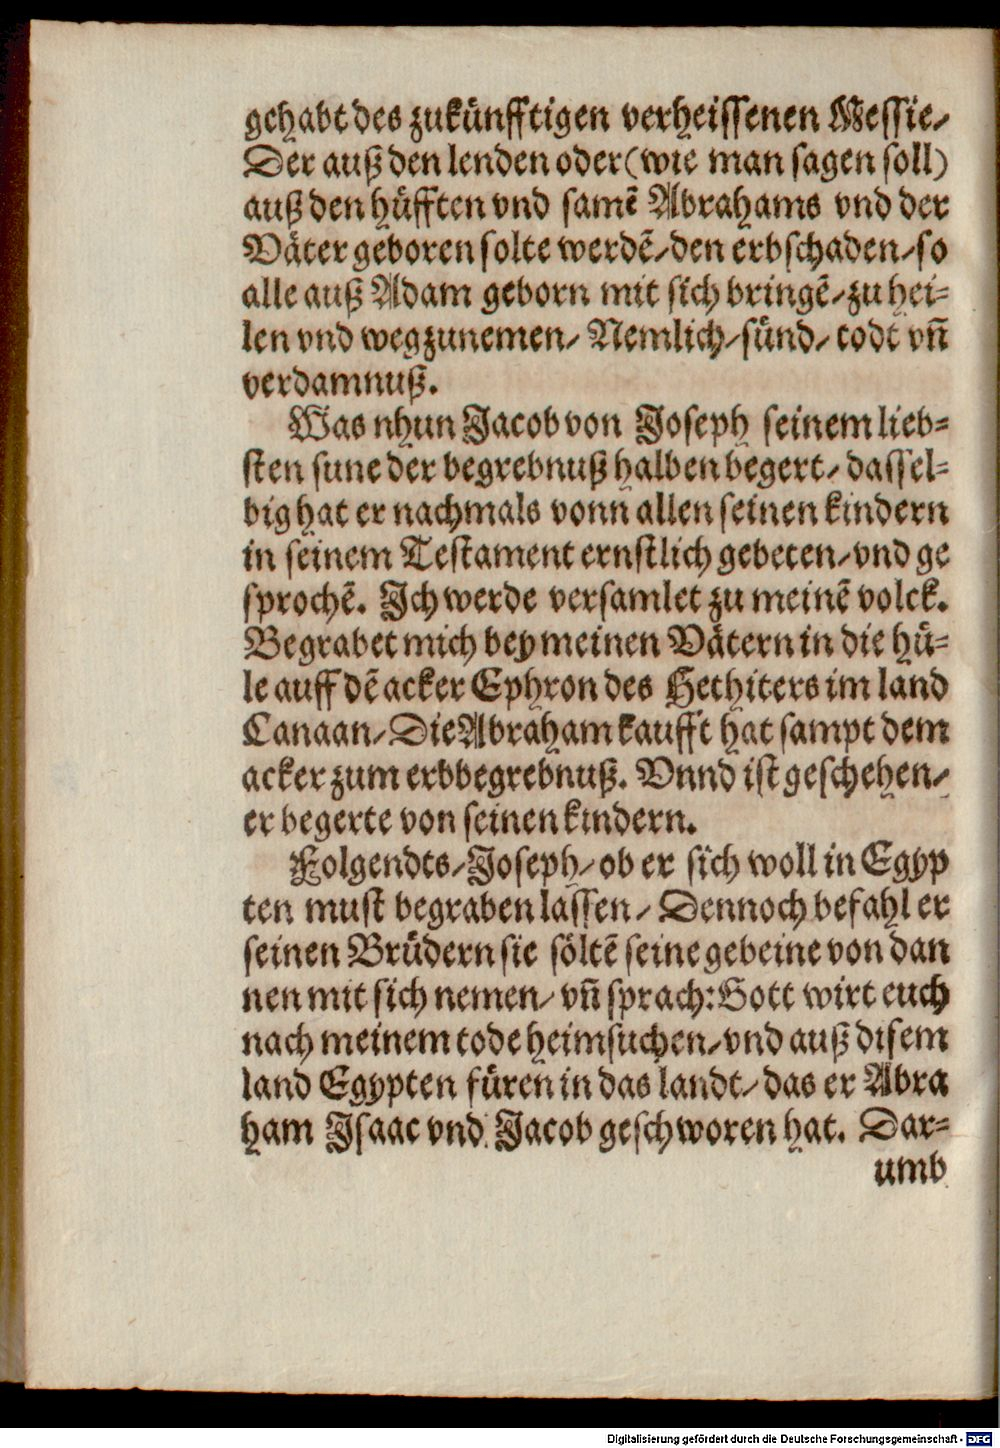 gehabt des zukünfftigen verheissenen Messie/
Der auß den lenden oder (wie man sagen soll)
auß den hüfften vnd samē Abrahams vnd der
Väter geboren solte werdē/ den erbschaden/ so
alle auß Adam geborn mit sich bringē/ zu hei-
len vnd wegzunemen/ Nemlich/ sünd/ todt vñ
verdamnuß.
Was nhun Jacob von Joseph seinem lieb-
sten sune der begrebnuß halben begert/ dassel-
big hat er nachmals vonn allen seinen kindern
in seinem Testament ernstlich gebeten/ vnd ge
sprochē. Ich werde versamlet zu meinē volck.
Begrabet mich bey meinen Vätern in die hü-
le auff dē acker Ephron des Hethiters im land
Canaan/ Die Abraham kaufft hat sampt dem
acker zum erbbegrebnuß. Vnnd ist geschehen/
er begerte von seinen kindern.
Folgendts/ Joseph/ ob er sich woll in Egyp
ten must begraben lassen/ Dennoch befahl er
seinen Brüdern sie söltē seine gebeine von dan
nen mit sich nemen/ vñ sprach: Gott wirt euch
nach meinem tode heimsuchen/ vnd auß disem
land Egypten füren in das landt/ das er Abra
ham Isaac vnd Jacob geschworen hat. Dar-
umb
Digitalisierung gefördert durch die Deutsche Forschungsgemeinschaft - DFG